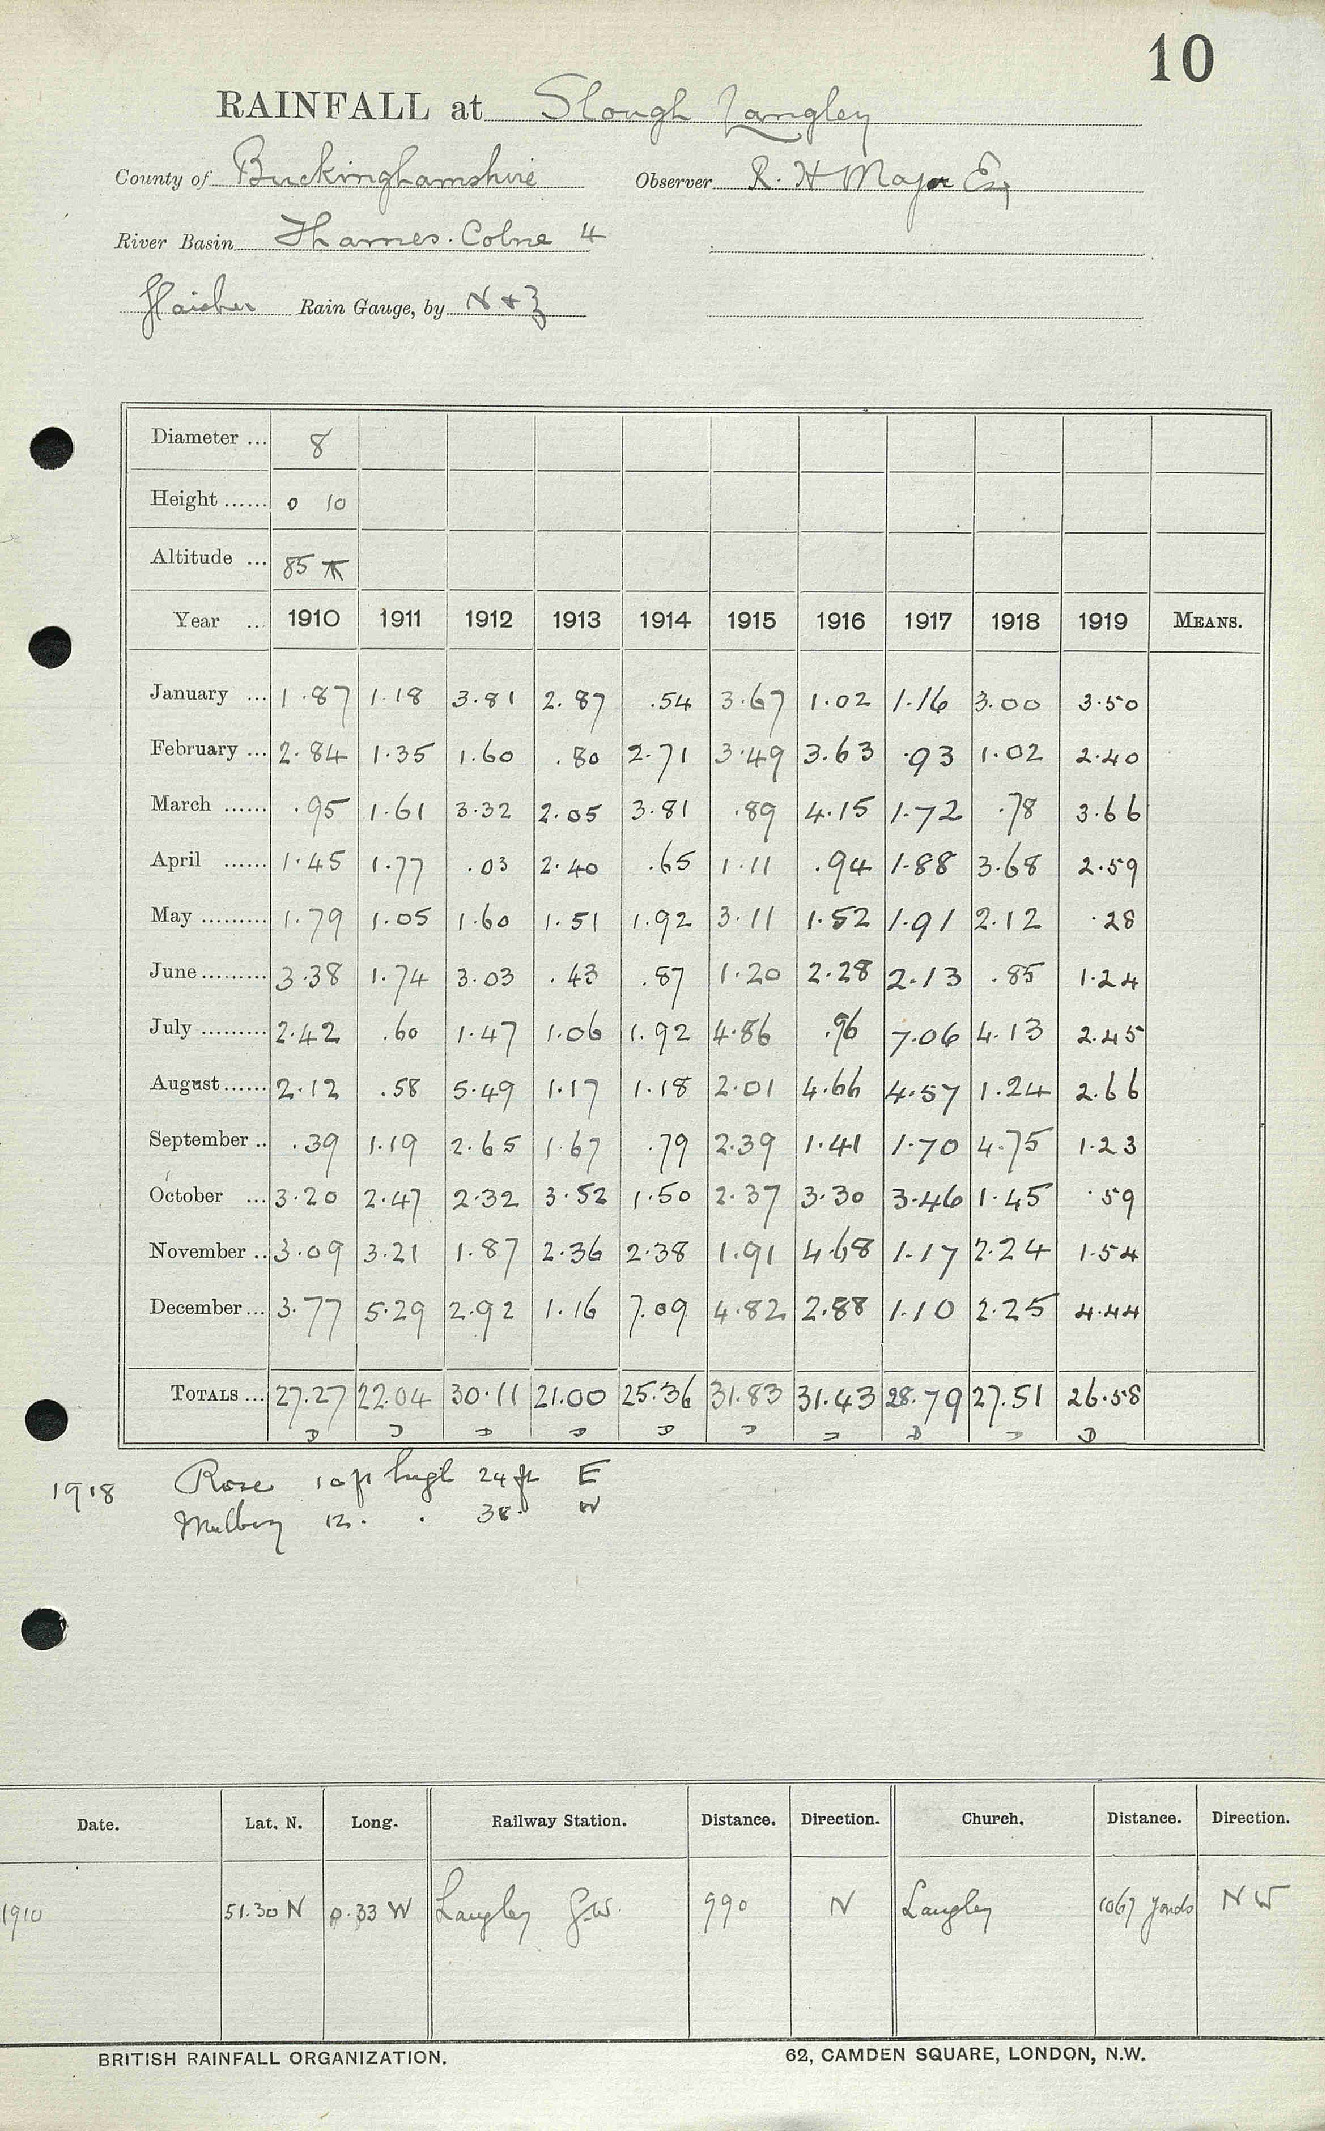 10
RAINFALL at Slough Langley
County of Buckinghamshire Observer R. H Major Esq
River Basin Thames. Colne 4
Rain Gauge, by N & Z
Diameter ... 8
Height ...... 0 10
Altitude ... 85
Year ... 1910 1911 1912 1913 1914 1915 1916 1917 1918 1919 MEANS.
January ... 1.87 1.18 3.81 2.87 .54 3.67 1.02 1.16 3.00 3.50
February ... 2.84 1.35 1.60 .80 2.71 3.49 3.63 .93 1.02 2.40
March ...... .95 1.61 3.32 2.05 3.81 .89 4.15 1.72 .78 3.66
April ...... 1.45 1.77 .03 2.40 .65 1.11 .94 1.88 3.68 2.59
May ......... 1.79 1.05 1.60 1.51 1.92 3.11 1.52 1.91 2.12 .28
June ......... 3.38 1.74 3.03 .43 .87 1.20 2.28 2.13 .85 1.24
July ......... 2.42 .60 1.47 1.06 1.92 4.86 .96 7.06 4.13 2.45
August ...... 2.12 .58 5.49 1.17 1.18 2.01 4.66 4.57 1.24 2.66
September .. .39 1.19 2.65 1.67 .79 2.39 1.41 1.70 4.75 1.23
October ... 3.20 2.47 2.32 3.52 1.50 2.37 3.30 3.46 1.45 .59
November .. 3.09 3.21 1.87 2.36 2.38 1.91 4.68 1.17 2.24 1.54
December ... 3.77 5.29 2.92 1.16 7.09 4.82 2.88 1.10 2.25 4.44
TOTALS ... 27.27 22.04 30.11 21.00 25.36 31.83 31.43 28.79 27.51 26.58
1918 Rose 10 ft high 24 ft E
Mulberry 12 . . 38 . W
Date. Lat. N. Long. Railway Station. Distance. Direction. Church. Distance. Direction.
1910 51.30 N 0.33 W Langley G.W. 990 N Langley 1067 yards N W
BRITISH RAINFALL ORGANIZATION. 62, CAMDEN SQUARE, LONDON, N.W.